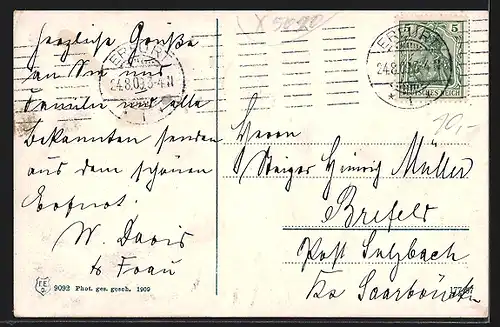 herzliche Grüße
an Sie und
Familie und alle
bekannten senden
aus dem schönen
Erfurt.
W. Davis
& Frau
ERFURT
24.8.09 3-4 N
* 1
ERFURT
24.8.09 3-4 N
* 1
5
DEUTSCHES REICH
X 5020
10,-
Herrn
Steiger Heinrich Müller
Brefeld
Post Sulzbach
Kr Saarbrücken
9092 Phot. ges. gesch. 1909